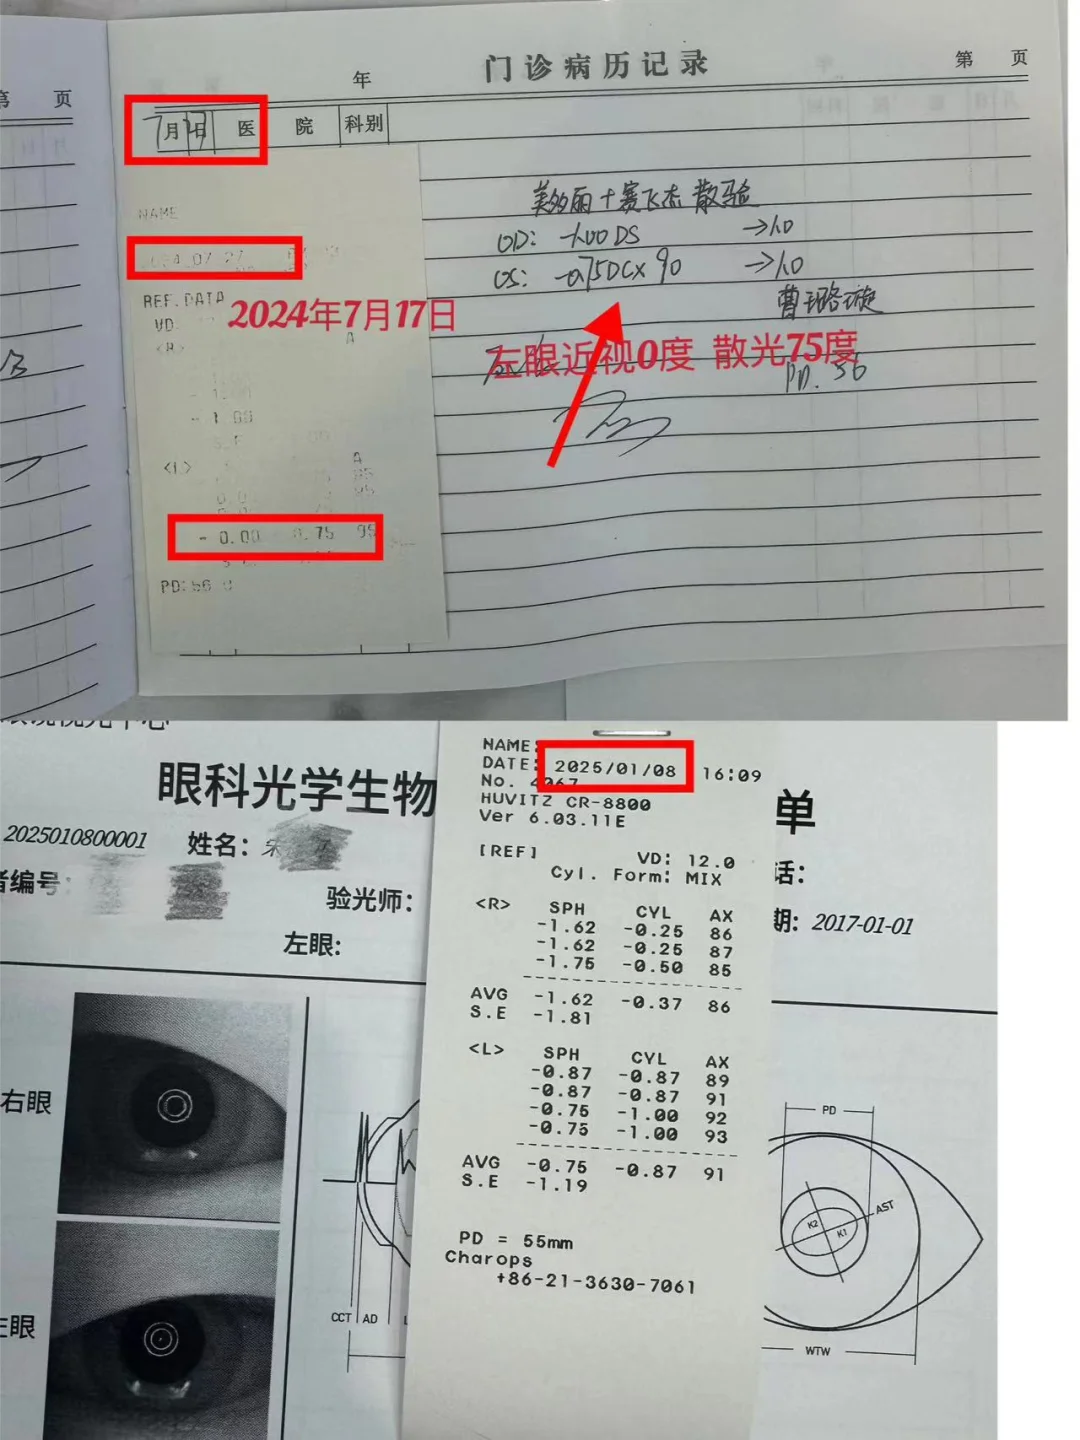 门诊病历记录
年
第 页
页
7月 日 医 院 科别
NAME
美多丽+赛飞杰 散验
OD: -1.00DS →1.0
OS: -0.75DC×90 →1.0
曹璐璇
PD. 56
REF.DATA
VD
<R>
A
2024年7月17日
左眼近视0度 散光75度
- 1.00
<L>
A
95
95
- 0.00 0.75 95
PD:56
眼科光学生物
单
2025010800001
姓名:
者编号:
验光师:
话:
期: 2017-01-01
左眼:
NAME:
DATE: 2025/01/08 16:09
No. 4067
HUVITZ CR-8800
Ver 6.03.11E
[REF] VD: 12.0
Cyl. Form: MIX
<R> SPH CYL AX
-1.62 -0.25 86
-1.62 -0.25 87
-1.75 -0.50 85
AVG -1.62 -0.37 86
S.E -1.81
<L> SPH CYL AX
-0.87 -0.87 89
-0.87 -0.87 91
-0.75 -1.00 92
-0.75 -1.00 93
AVG -0.75 -0.87 91
S.E -1.19
PD = 55mm
Charops
+86-21-3630-7061
右眼
左眼
CCT AD L
PD
AST
K2
K1
WTW